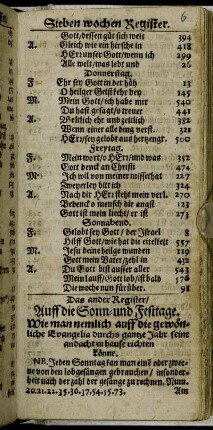 6
Sieben wochen Register.
Gott/dessen güt sich weit 394
A. Gleich wie ein hirsche in 418
HErr unser Gott/wenn ich 299
Alle welt/was lebt und 26
Donnerstag.
F. Ehr sey Gott in der höh 13
O heilger Geist kehr bey 145
M. Mein Gott/ich habe mir 540
Du hast gesagt/o treuer 441
A. Weltlich ehr und zeitlich 388
Wenn einer alle ding verst. 321
HErr/sey gelobt aus hertzengr. 500
Freytag.
F. Mein wort/o HErr/und was 352
Gott denk an Christi 474
M. Ich will von meiner missethat 227
Zweyerley bitt ich 324
A. Nach dir HErr steht mein verl. 270
Bedenk o mensch die angst 183
Gott ist mein liecht/er ist 273
Sonnabend.
F. Gelobt sey Gott/der Israel 8
Hilff Gott/wie hat die eitelkeit 557
M. Jesu deine heilge wunden 119
Gott mein Vater/zehl in 432
A. Du Gott bist ausser aller 543
Mein lauff/Gott lob/ist bald 576
Die woche nun fürüber. 98
Das ander Register/
Auff die Sonn- und Festtage.
Wie man nemlich auff die gewön-
liche Evangelia durchs gantze Jahr seine
andacht zu hause richten
könne.
NB. Jeden Sonntag kan man eine oder zwee-
ne von den lobgesängen gebrauchen/ insonder-
heit nach der zahl der gesänge zu rechnen. Num.
20.21.22.35.36.37.54.15.73. Am